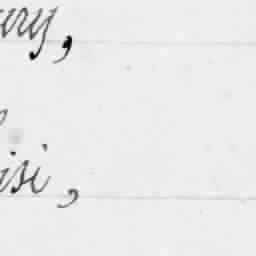 ury,
isi,